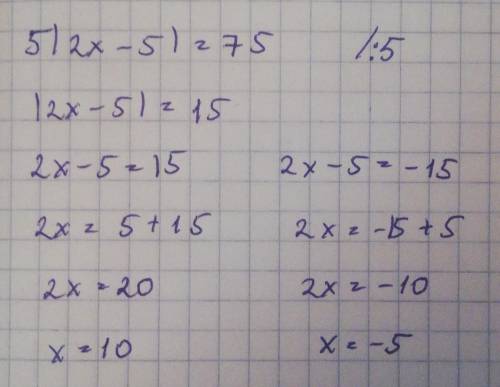 5|2x-5|=75 /:5
|2x-5|=15
2x-5=15 2x-5=-15
2x=5+15 2x=-15+5
2x=20 2x=-10
x=10 x=-5